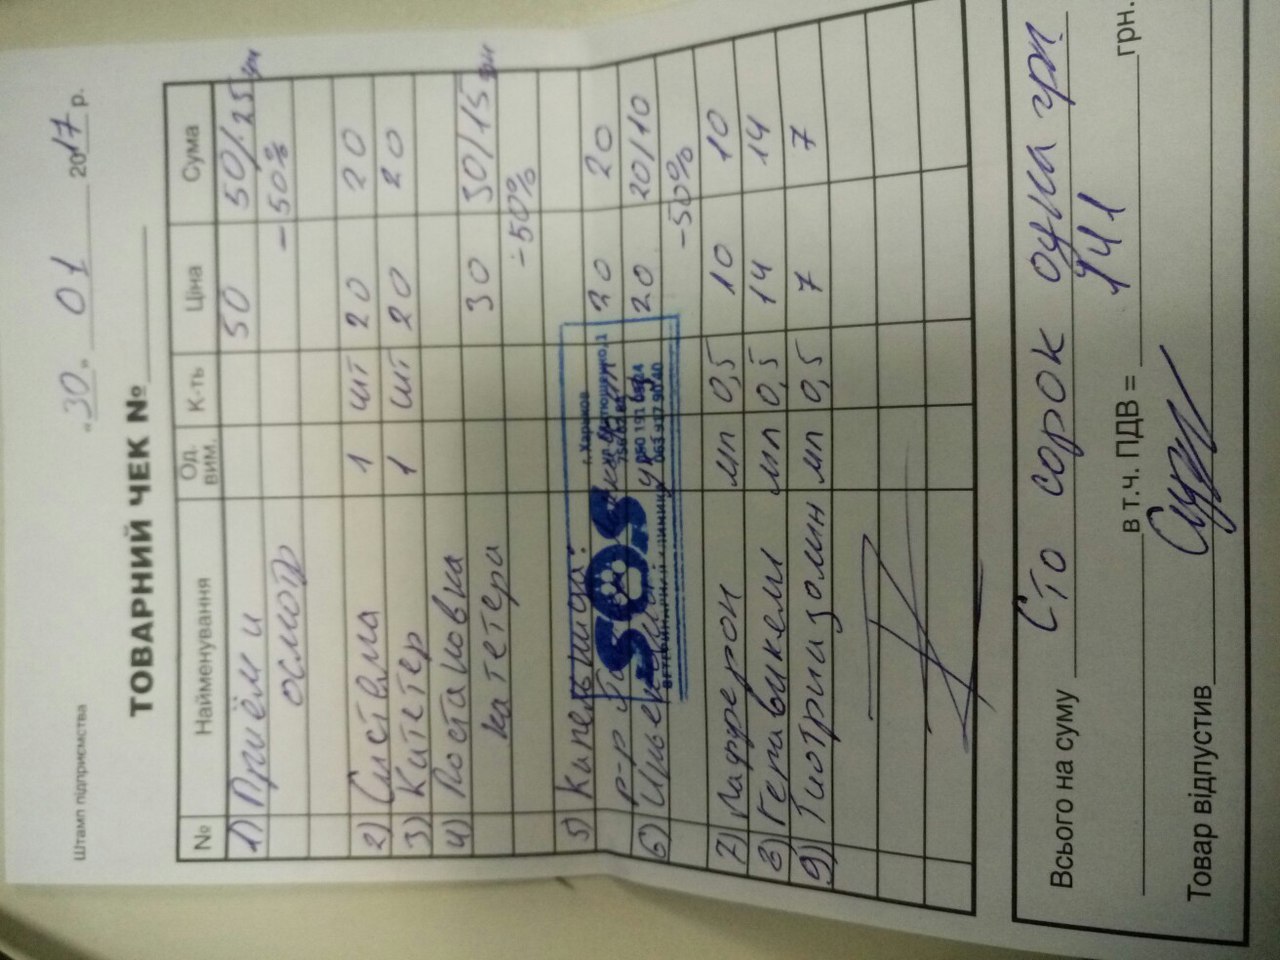 Штамп підприємства
"30" 01 2017 р.
ТОВАРНИЙ ЧЕК №
№ Найменування Од. вим. К-ть Ціна Сума
1) Приём и 50 50/25 грн
осмотр -50%
2) Система 1 шт 20 20
3) Катетер 1 шт 20 20
4) Постановка 30 30/15 грн
катетера -50%
5) Капельница: 20 20
р-р
6) Инъекции 20 20/10
-50%
7) Лаферон мл 0,5 10 10
8) Гепавикел мл 0,5 14 14
9) Тиотриазолин мл 0,5 7 7
г. Харьков
SOS
ВЕТЕРИНАРНАЯ КЛИНИКА
Всього на суму Сто сорок одна грн
141
в т.ч. ПДВ = грн.
Товар відпустив